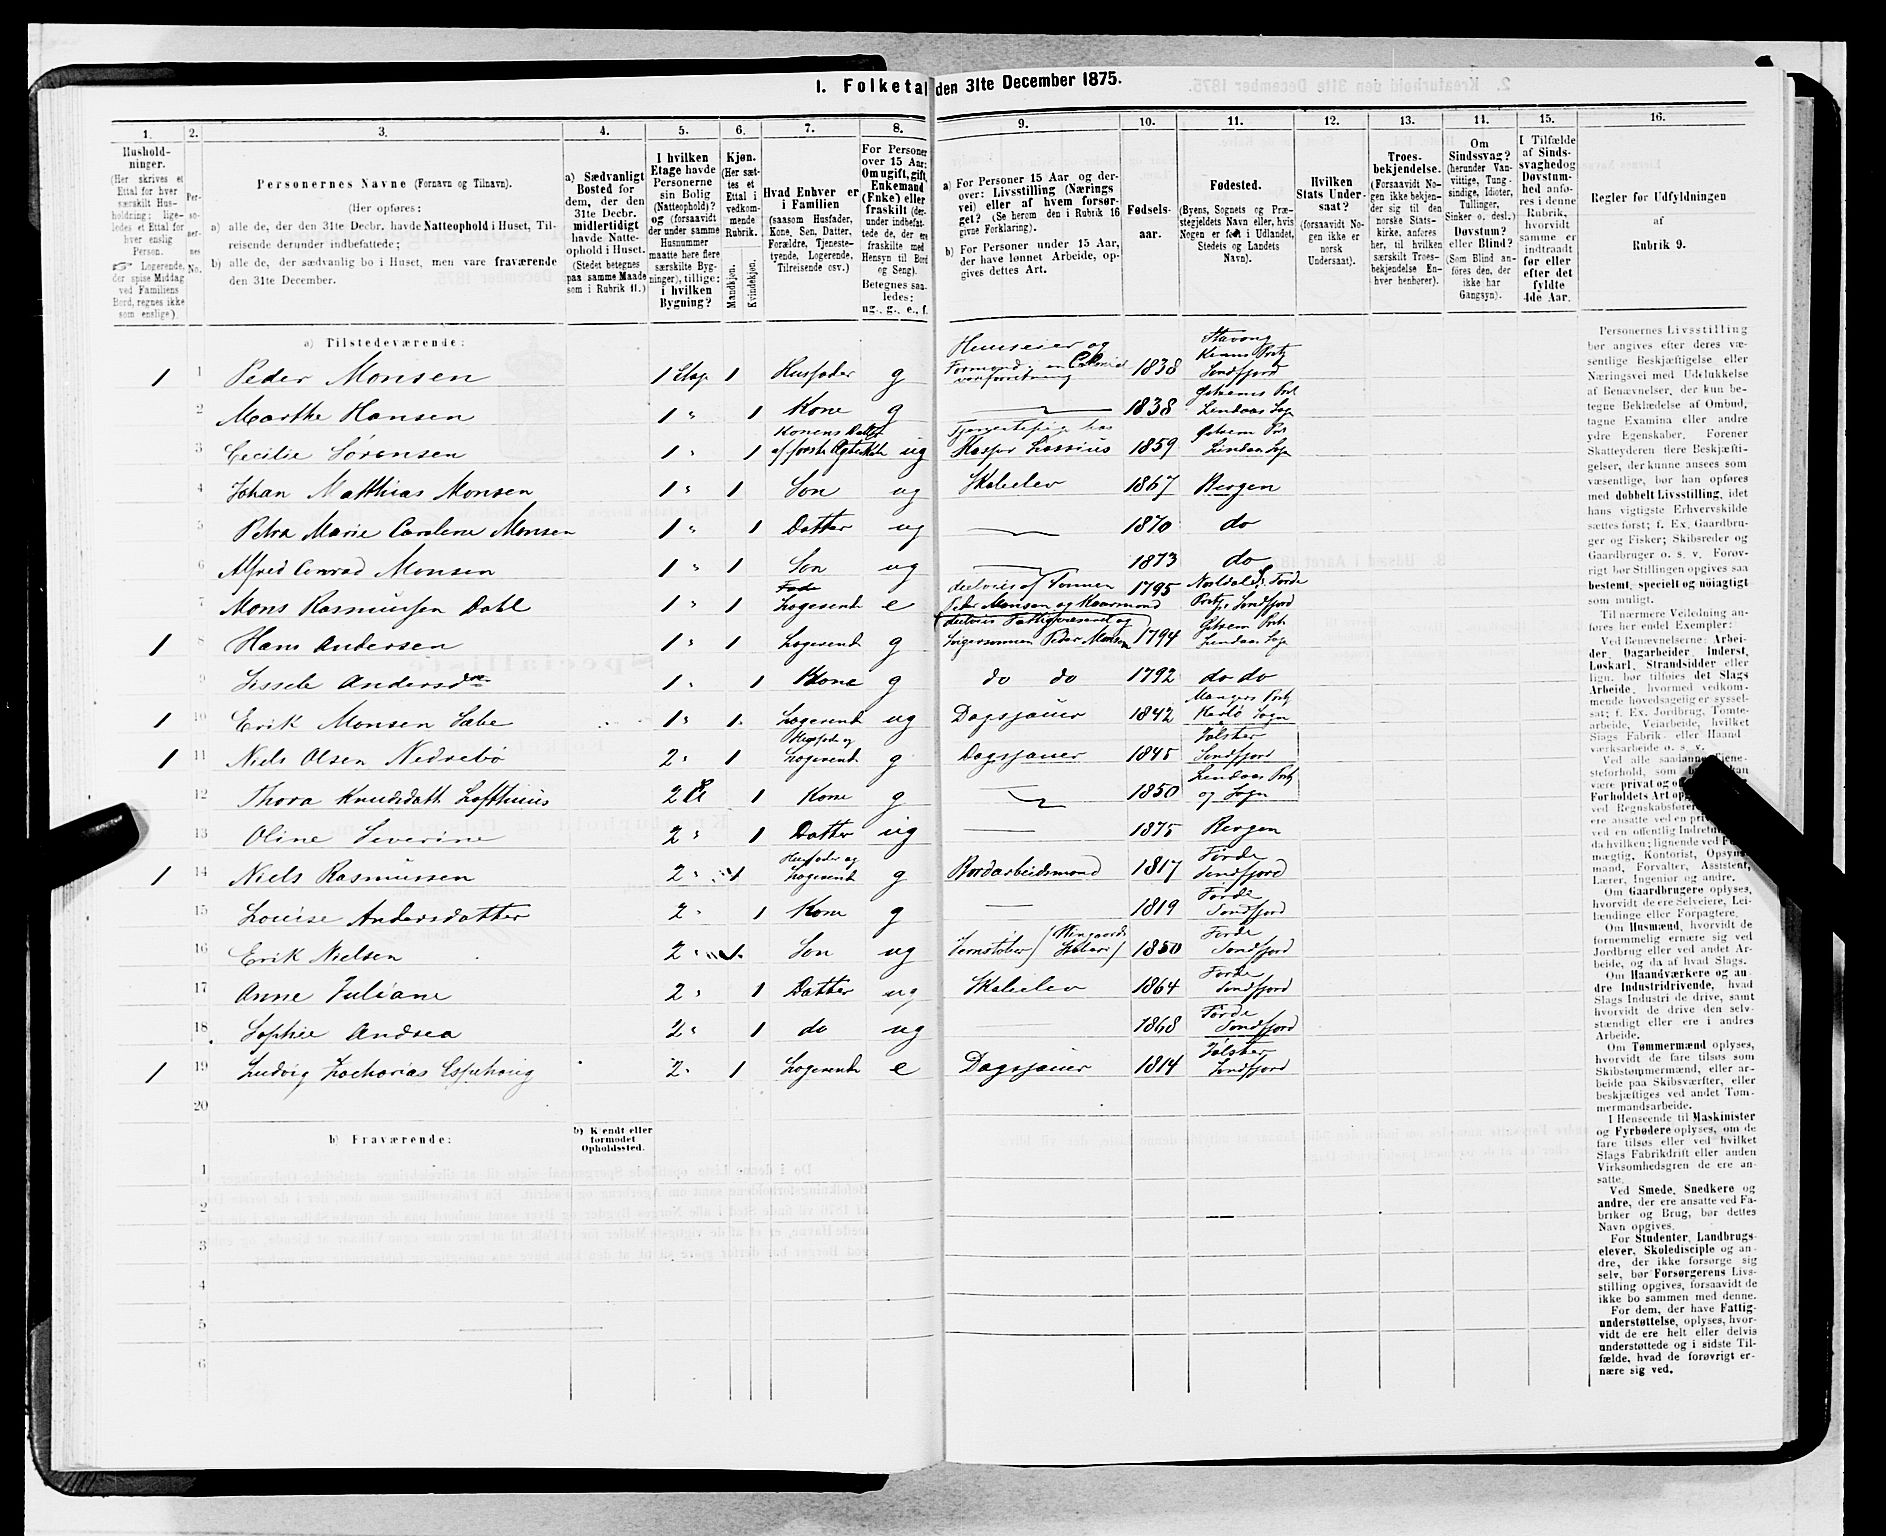 1. Folketal den 31te December 1875.
1. 2. 3. 4. 5. 6. 7. 8. 9. 10. 11. 12. 13. 14. 15. 16.
Hushold-
ninger.
(Her skrives et
Ettal for hver
særskilt Hus-
holdning; lige-
ledes et Ettal for
hver enslig
Person.
☞ Logerende,
der spise Middag
ved Familiens
Bord, regnes ikke
som enslige).
Per-
so-
ner-
nes
No.
Personernes Navne (Fornavn og Tilnavn).
(Her opføres:
a) alle de, der den 31te Decbr. havde Natteophold i Huset, Til-
reisende derunder indbefattede;
b) alle de, der sædvanlig bo i Huset, men vare fraværende
den 31te December.
a) Sædvanligt
Bosted for
dem, der den
31te Decbr.
midlertidigt
havde Natte-
ophold i Huset.
(Stedet betegnes
paa samme Maade
som i Rubrik 11.)
I hvilken
Etage havde
Personerne
sin Bolig
(Natteophold)?
og (forsaavidt
der under samme
Husnummer
maatte høre flere
særskilte Byg-
ninger), tillige:
i hvilken
Bygning?
Kjøn.
(Her sæt-
tes et
Ettal i
vedkom-
mende
Rubrik.
Mandkjøn.
Kvindekjøn.
Hvad Enhver er
i Familien
(saasom Husfader,
Kone, Søn, Datter,
Forældre, Tjeneste-
tyende, Logerende,
Tilreisende osv.)
For Personer
over 15 Aar:
Om ugift, gift,
Enkemand
(Enke) eller
fraskilt (der-
under indbefat-
tede de, der ere
fraskilte med
Hensyn til Bord
og Seng).
Betegnes saa-
ledes:
ug., g., e., f.
a) For Personer 15 Aar og der-
over: Livsstilling (Nærings
vei) eller af hvem forsør-
get? (Se herom den i Rubrik 16
givne Forklaring).
b) For Personer under 15 Aar,
der have lønnet Arbeide, op-
gives dettes Art.
Fødsels-
aar.
Fødested.
(Byens, Sognets og Præ-
stegjeldets Navn eller, hvis
Nogen er født i Udlandet,
Stedets og Landets
Navn).
Hvilken
Stats Under-
saat?
(forsaavidt No-
gen ikke er
norsk
Undersaat).
Troes-
bekjendelse.
(Forsaavidt No-
gen ikke bekjen-
der sig til den
norske Stats-
kirke, anføres
her, til hvilken
særskilt Troes-
bekjendelse En-
hver henhører).
Om
Sindssvag?
(herunder Van-
vittige, Tung-
sindige, Idioter,
Tullinger,
Sinker o. desl.)
Døvstum?
eller Blind?
(Som Blind an-
føres den, der
ikke har
Gangsyn).
I Tilfælde
af Sinds-
svaghed og
Døvstum-
hed anfø-
res i denne
Rubrik,
hvorvidt
samme er
indtraadt
før eller
efter det
fyldte
4de Aar.
Regler for Udfyldningen
af
Rubrik 9.
a) Tilstedeværende:
1 1 Peder Monsen 1 Etage 1 Husfader g 1838 Søndfjord
2 Marthe Hansen 1 " 1 Kone g 1838 Lindaas Sogn
3 Cecilie Sørensen 1 " 1 Konens Datter af første Ægteskab ug Tjenestepige hos Kasper Lassius 1859 Lindaas Sogn
4 Johan Matthias Monsen 1 " 1 Søn ug Skoleelev 1867 Bergen
5 Petra Marie Carolene Monsen 1 " 1 Datter ug 1870 do
6 Alfred Conrad Monsen 1 " 1 Søn ug 1873 do
7 Mons Rasmussen Dahl 1 " 1 Logerende e delvis af Sønnen Peder Monsen 1795 Førde Søndfjord
1 8 Hans Andersen 1 " 1 Logerende g delvis Fattigvæsenet og Svigersønnen Peder Monsen 1794 Lindaas Sogn
9 Lissele Andersdr 1 " 1 Kone g do do 1792 do do
1 10 Erik Monsen Sæbø 1 " 1 Logerende ug Dagsjauer 1842 Mangers Prstg Sogn
1 11 Niels Olsen Nedrebø 2 " 1 Husfader og Logerende g Dagsjauer 1845 Jølster Søndfjord
12 Thora Knudsdatt Lofthuus 2 E 1 Kone g 1850 Lindaas Prstg og Sogn
13 Oline Severine 2 " 1 Datter ug 1875 Bergen
1 14 Niels Rasmussen 2 " 1 Husfader og Logerende g Bordarbeidsmand 1817 Førde Søndfjord
15 Louise Andersdatter 2 " 1 Kone g 1819 Førde Søndfjord
16 Erik Nielsen 2 " 1 Søn ug Jernstøber 1850 Førde Søndfjord
17 Anne Juliane 2 " 1 Datter ug Skoleelev 1864 Førde Søndfjord
18 Sophie Andrea 2 " 1 do ug 1868 Førde Søndfjord
1 19 Ludvig Zacharias Espehoug 2 " 1 Logerende e Dagsjauer 1814 Jølster Søndfjord
20
b) Fraværende:
b) Kjendt eller
formodet
Opholdssted.
1
2
3
4
5
6
Personernes Livsstilling
bør angives efter deres væ-
sentlige Beskjæftigelse eller
Næringsvei med Udelukkelse
af Benævnelser, der kun be-
tegne Beklædelse af Ombud,
tagne Examina eller andre
ydre Egenskaber. Forener
Skatteyderen flere Beskjæfti-
gelser, der kunne ansees som
væsentlige, bør han opføres
med dobbelt Livsstilling, idet
hans vigtigste Erhvervskilde
sættes først; f. Ex. Gaardbru-
ger og Fisker; Skibsreder og
Gaardbruger o. s. v. Forøv-
rigt bør Stillingen opgives saa
bestemt, specielt og nøiagtigt
som muligt.
Til nærmere Veiledning an-
føres her endel Exempler:
Ved Benævnelserne: Arbei-
der, Dagarbeider, Inderst,
Løskarl, Strandsidder eller
lign. bør tilføies det Slags
Arbeide, hvormed vedkom-
mende hovedsagelig er syssel-
sat; f. Ex. Jordbrug, Tomte-
arbeide, Veiarbeide, hvilket
Slags Fabrik- eller Haand-
værksarbeide o. s. v.
Ved alle saadanne Tjene-
steforhold, som
være privat og
Forholdets Art
Om Gaardbrugere oplyses,
hvorvidt de ere Selveiere, Lei-
lændinge eller Forpagtere.
Om Husmænd, hvorvidt de
fornemmelig ernære sig ved
Jordbrug eller ved andet Ar-
beide, og da af hvad Slags.
Om Haandværkere og an-
dre Industridrivende, hvad
Slags Industri de drive, samt
hvorvidt de drive den selv-
stændigt eller ere i andres
Arbeide.
Om Tømmermænd oplyses,
hvorvidt de fare tilsøs som
Skibstømmermænd, eller ar-
beide paa Skibsværfter, eller
beskjæftiges ved andet Tøm-
mermandsarbeide.
I Henseende til Maskinister
og Fyrbødere oplyses, om de
fare tilsøs eller ved hvilket
Slags Fabrikdrift eller anden
Virksomhedsgren de ere an-
satte.
Ved Smede, Snedkere og
andre, der ere ansatte ved Fa-
briker og Brug, bør dettes
Navn opgives.
For Studenter, Landbrugs-
elever, Skoledisciple og an-
dre, der ikke forsørge sig
selv, bør Forsørgerens Livs-
stilling opgives, forsaavidt de
ikke bo sammen med denne.
For dem, der have Fattig-
understøttelse, oplyses, hvor-
vidt de ere helt eller delvis
understøttede og i sidste Til-
fælde, hvad de forøvrigt er-
nære sig ved.